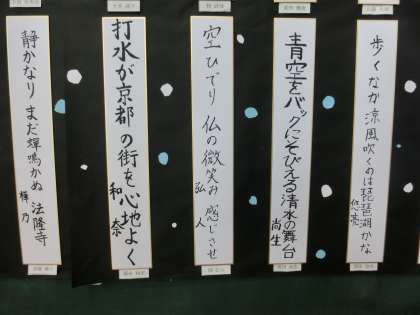 歩くなか涼風吹くのは琵琶湖かな
悠亮
青空をバックにそびえる清水の舞台
尚生
空ひでり 仏の微笑み 感じさせ
弘人
打水が京都の街を心地よく
和奈
静かなり まだ蝉鳴かぬ 法隆寺
樺乃